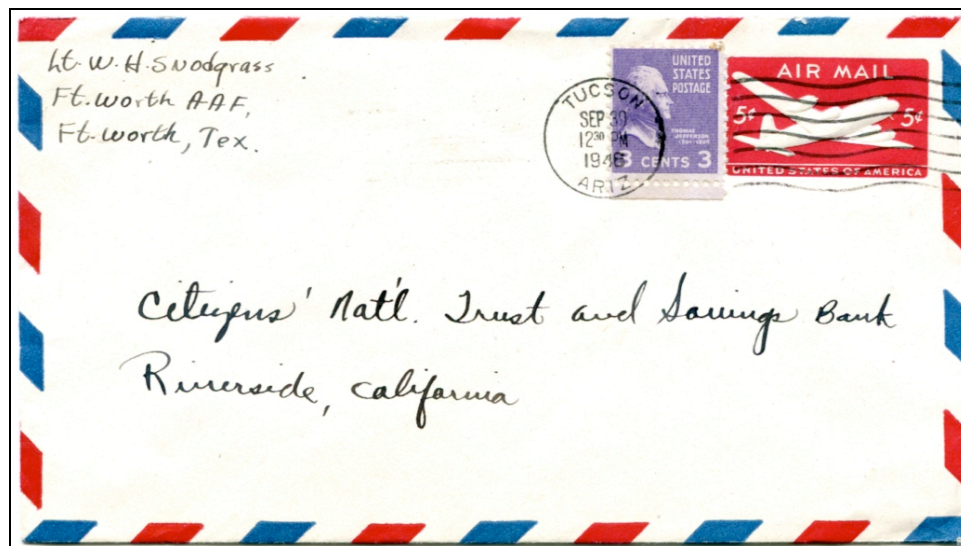 Lt. W. H. Snodgrass
Ft. Worth A.A.F.,
Ft. Worth, Tex.
TUCSON
SEP 30
12 30 PM
1946
ARIZ.
UNITED
STATES
POSTAGE
THOMAS
JEFFERSON
3 CENTS 3
AIR MAIL
5¢ 5¢
UNITED STATES OF AMERICA
Citizens' Nat'l. Trust and Savings Bank
Riverside, California